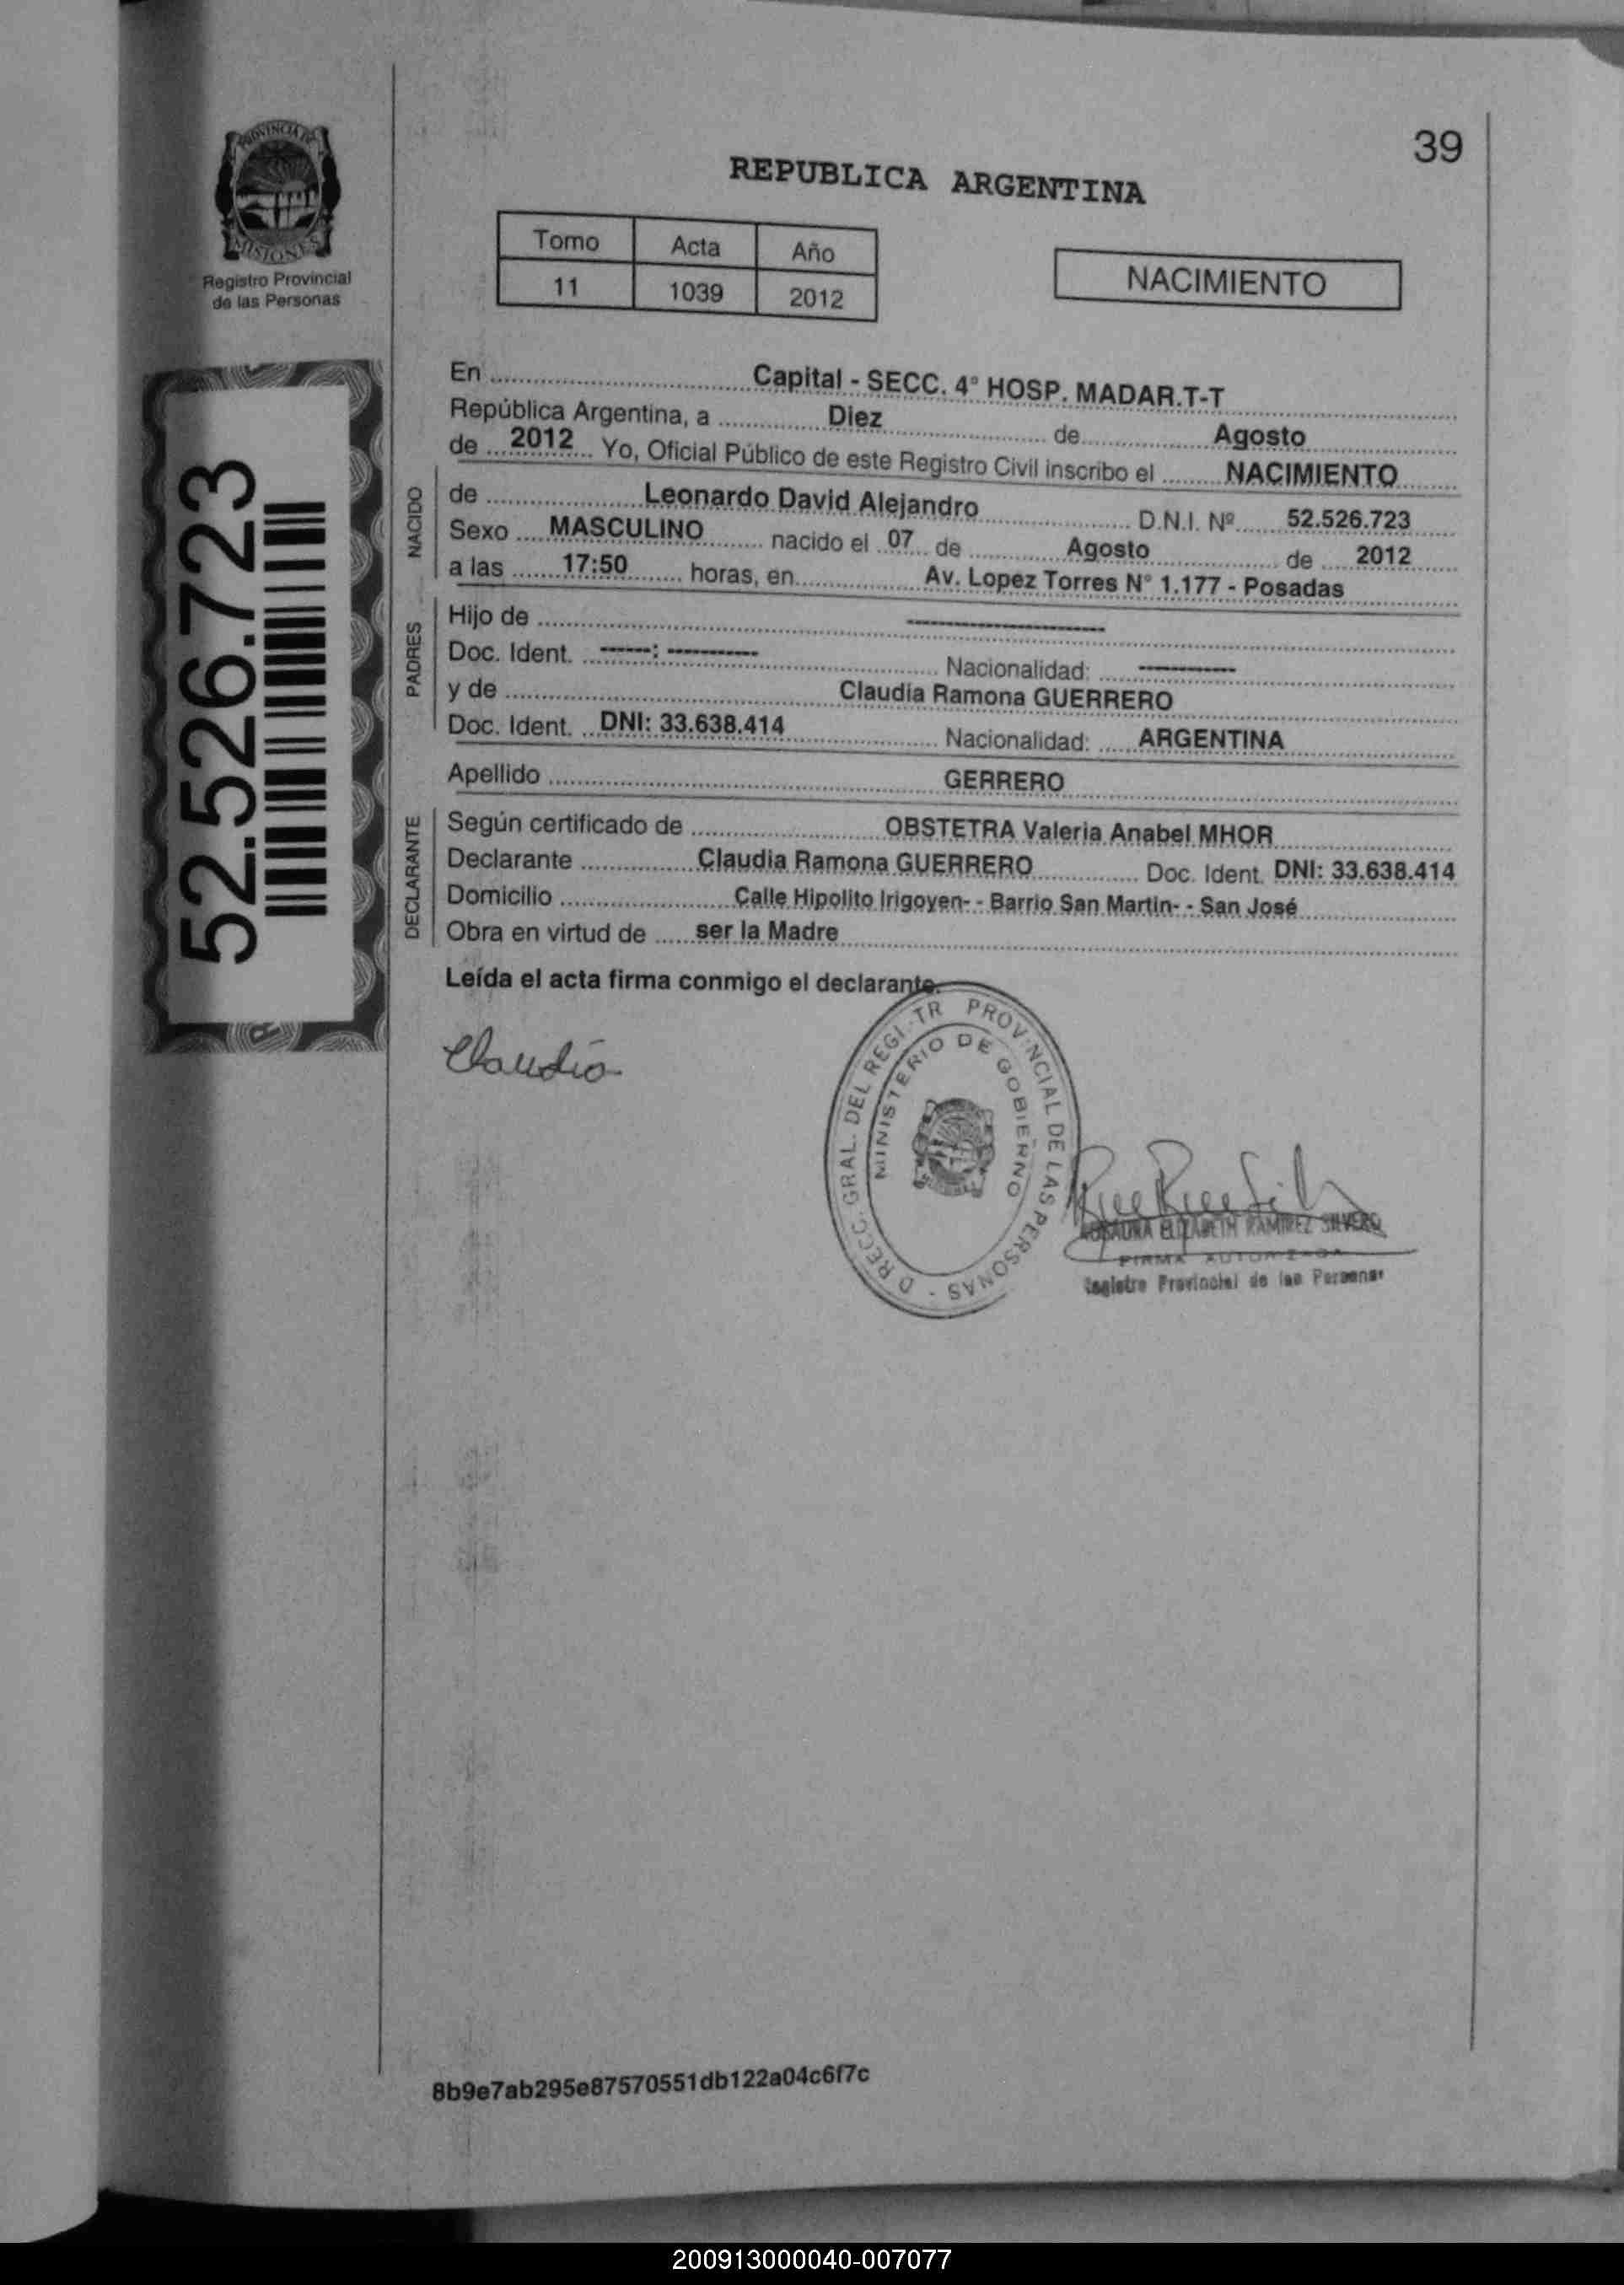 39
PROVINCIA DE
MISIONES
Registro Provincial
de las Personas
REPUBLICA ARGENTINA
Tomo Acta Año
11 1039 2012
NACIMIENTO
52.526.723
En Capital - SECC. 4° HOSP. MADAR.T-T
República Argentina, a Diez de Agosto
de 2012 Yo, Oficial Público de este Registro Civil inscribo el NACIMIENTO
NACIDO
de Leonardo David Alejandro D.N.I. Nº 52.526.723
Sexo MASCULINO nacido el 07 de Agosto de 2012
a las 17:50 horas, en Av. Lopez Torres N° 1.177 - Posadas
PADRES
Hijo de --------------------
Doc. Ident. ------: ----------- Nacionalidad: -----------
y de Claudia Ramona GUERRERO
Doc. Ident. DNI: 33.638.414 Nacionalidad: ARGENTINA
Apellido GERRERO
DECLARANTE
Según certificado de OBSTETRA Valeria Anabel MHOR
Declarante Claudia Ramona GUERRERO Doc. Ident. DNI: 33.638.414
Domicilio Calle Hipolito Irigoyen- - Barrio San Martin- - San José
Obra en virtud de ser la Madre
Leída el acta firma conmigo el declarante.
Claudia
D RECC. GRAL. DEL REGI.TR PROVINCIAL DE LAS PERSONAS -
MINISTERIO DE GOBIERNO
ROSAURA ELIZABETH RAMIREZ SILVERO
FIRMA AUTORIZADA
Registro Provincial de las Personas
8b9e7ab295e87570551db122a04c6f7c
200913000040-007077